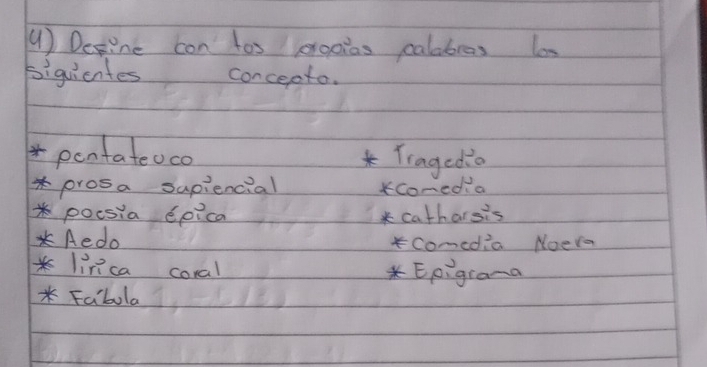 4) Define con tos propias palabras los
siguientes concepto.
* pentateuco
* prosa sapiencial
* poesia épica
* Aedo
* lirica coral
* Fábula
* Tragedia
* comedia
* catharsis
* comedia Noeva
* Epigrama